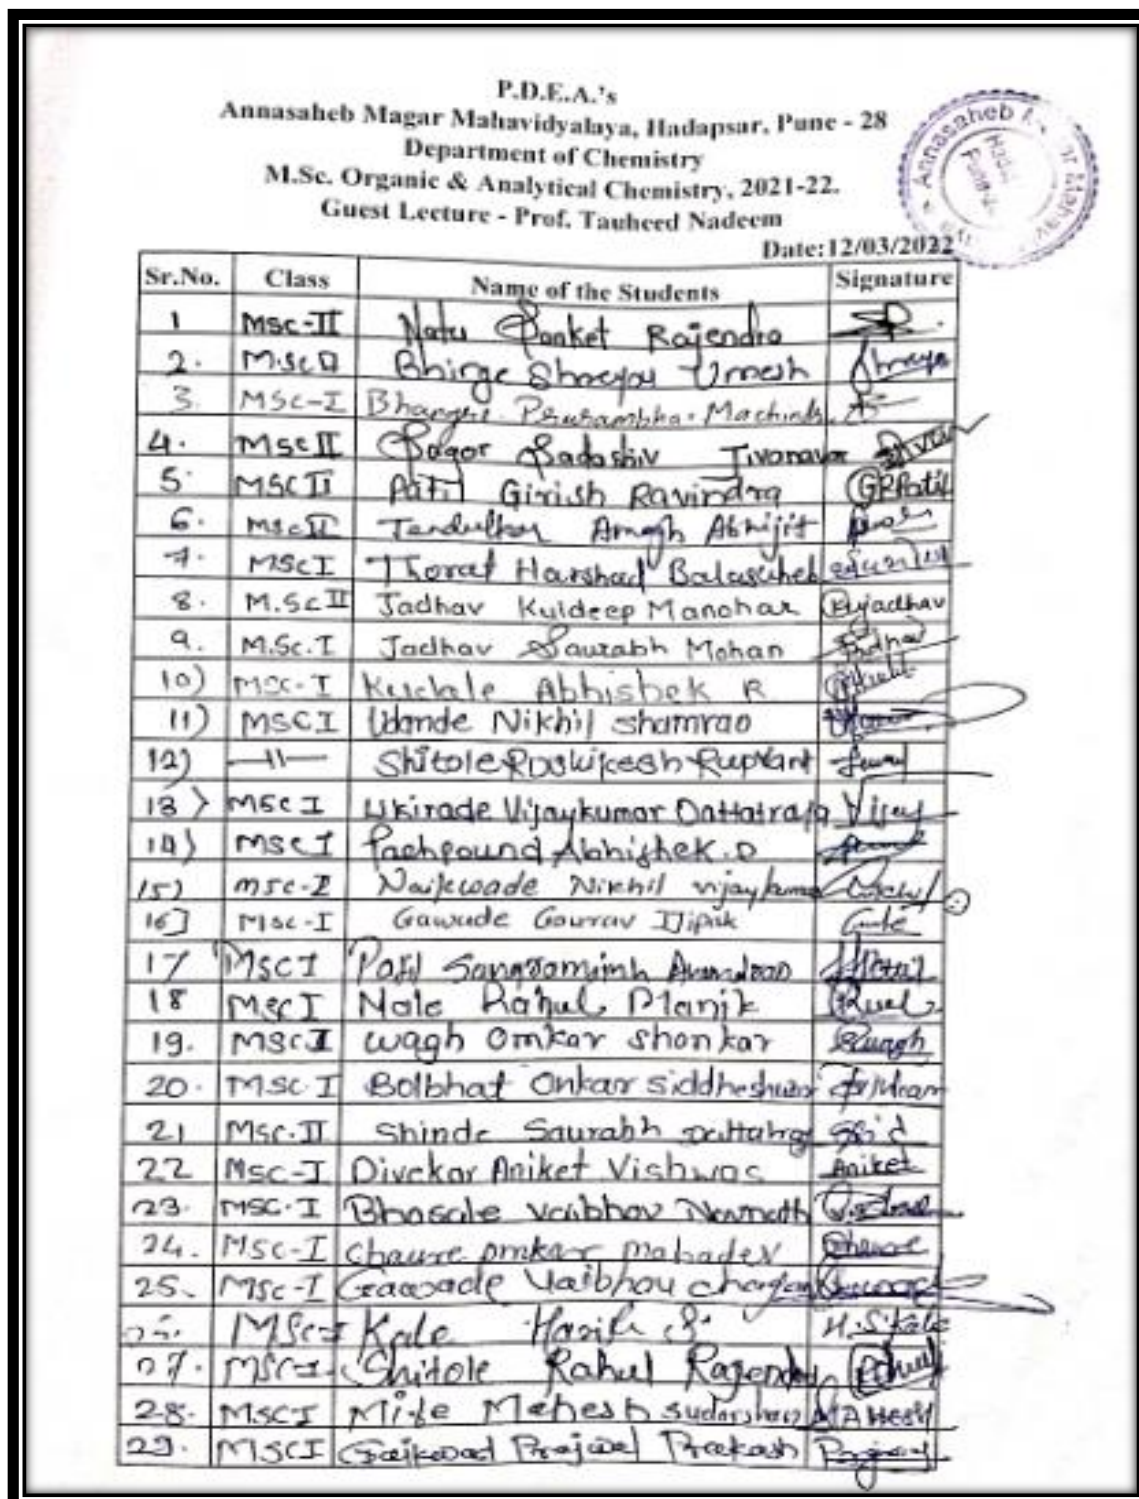 P.D.E.A.'s
Annasaheb Magar Mahavidyalaya, Hadapsar, Pune - 28
Department of Chemistry
M.Sc. Organic & Analytical Chemistry, 2021-22.
Guest Lecture - Prof. Tauheed Nadeem
Date:12/03/2022
Annasaheb
Sr.No. Class Name of the Students Signature
1 MSC-II Natu Sanket Rajendra
2. M.SC II Bhirge Shreyas Umesh Shreyas
3. MSC-I Bhangre Prarambha
4. MSC II Sagar Sadashiv Tivanavar
5. MSC II Patil Girish Ravindra GRPatil
6. MSC II Tendulkar Amogh Abhijit
7. MSC I Thorat Harshad Balasaheb
8. M.Sc II Jadhav Kuldeep Manohar Kujadhav
9. M.Sc. I Jadhav Saurabh Mohan
10) MSC-I Kudale Abhishek R
11) MSC I Udande Nikhil Shamrao
12) —11— Shitole
13) MSC I Ukirade Vijaykumar Dattatraja Vijay
14) MSC I Pachpound Abhishek.D
15) MSC-I Naikwade Nikhil vijaykumar
16] MSC-I Gawude Gourav Dipak
17 MSC I Patil
18 MSC I Nale Rahul Manik
19. MSC I Wagh Omkar Shankar
20. MSC I Bolbhat Onkar Siddheshwar
21 MSC.II Shinde Saurabh
22 MSC-I Divekar Aniket Vishwas Aniket
23. MSC.I Bhosale Vaibhav Navnath
24. MSC-I Chaure Omkar Mahadev
25. MSC-I Gawade Vaibhav
MSC-I Kale H.S.Kale
27. MSC-I Shitole Rahul Rajendra
28. MSC I Mahesh Sudarshan MAHESH
29. MSC I Gaikwad Prajwal Prakash